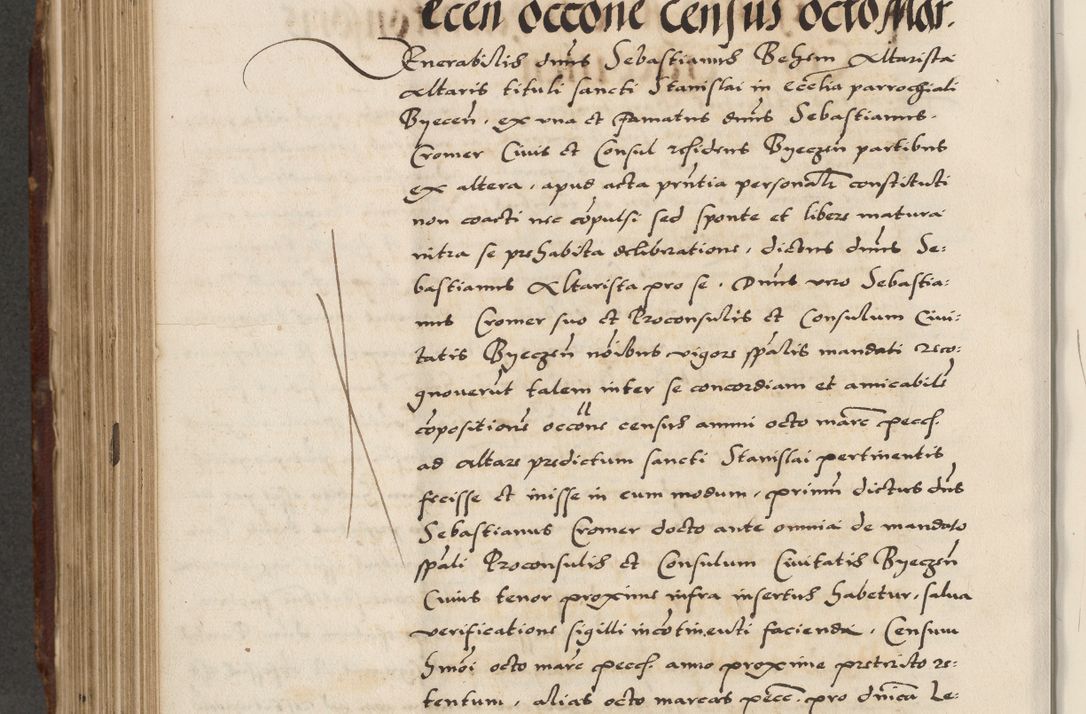 ecen occone census octo Mar.
Venerabilis dnus Sebastianus Behem Altarista
altaris tituli sancti Stanislai in ecclia parrochiali
Byecen. ex vna et famatus dnus Sebastianus
Cromer Civis et Consul residens Byeczen partibus
ex altera, apud acta pntia personalr constituti
non coacti nec copulsi sed sponte et libere matura
intra se prehabita deliberatione, dictus dnus Se:
bastianus Altarista pro se. Dnus vero Sebastia:
nus Cromer suo et Proconsulis et Consulum Civi:
tatis Byeczen noibus vigore spalis mandati reco:
gnouerut talem inter se concordiam et amicabile
copositione occone census annui octo marc pecc.
ad altare predictum sancti Stanislai pertinentis
fecisse et inisse in eum modum, primu dictus dns
Sebastianus Cromer docto ante omnia de mandato
spali Proconsulis et Consulum Civitatis Byeczen
Cuius tenor proxime infra insertus habetur, salua
verificatione sigilli incotinenti facienda, Censum
hmoi octo marc pecc. anno proxime preterito re:
tentum, alias octo marcas pecc. pro dnica Le: